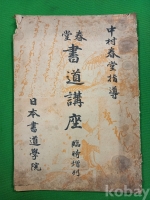 中村春堂指導
春堂書道講座
臨時增刊
日本書道學院
kobay